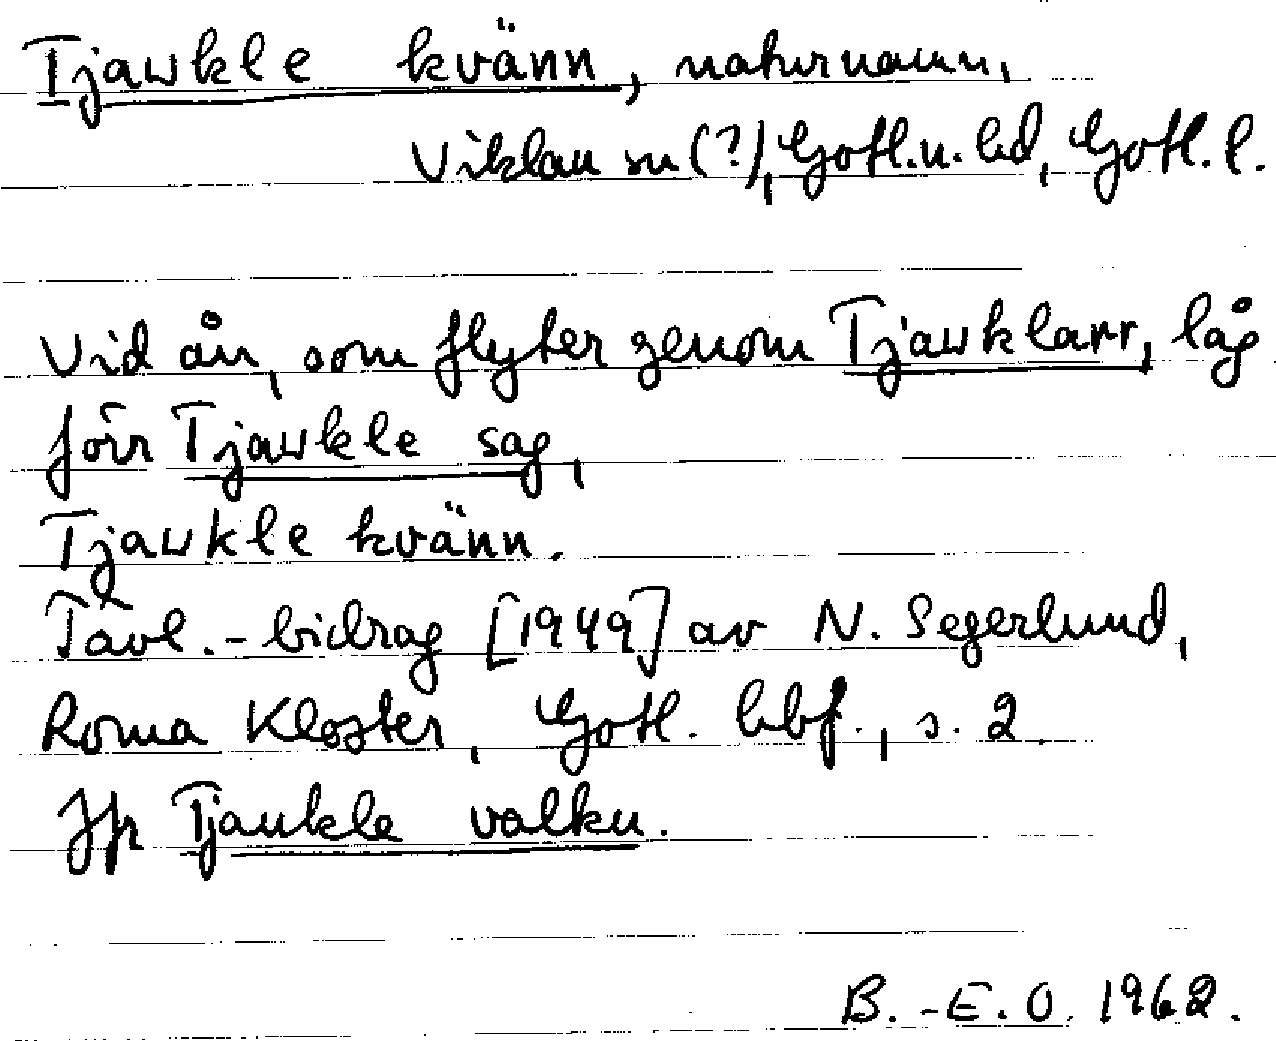 Tjaukle kvänn, naturnamn,
Viklau sn (?), Gotl. n. hd, Gotl. l.
Vid ån, som flyter genom Tjauklarr, låg
förr Tjaukle sag,
Tjaukle kvänn.
Tävl.-bidrag [1949] av N. Segerlund,
Roma Kloster, Gotl. hbf., s. 2.
Jfr Tjaukle valku.
B.-E. O. 1962.